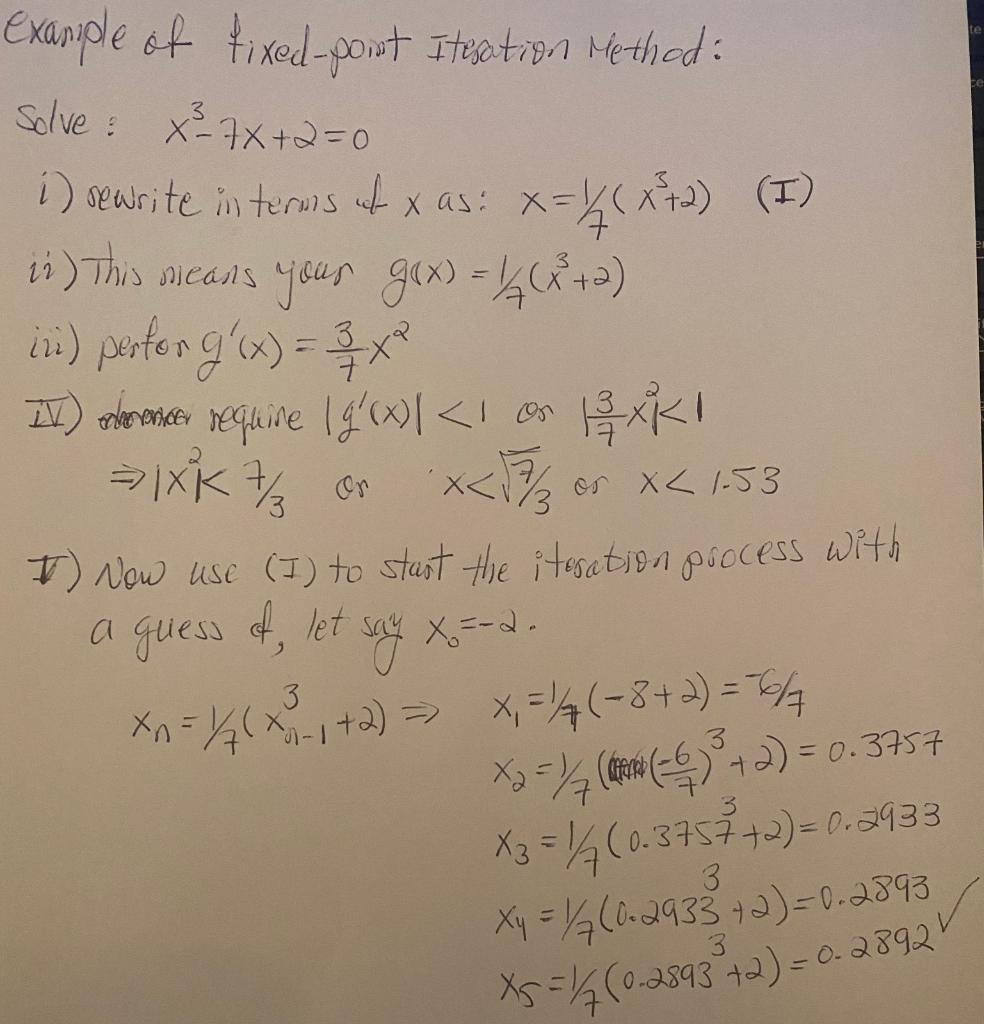 Example of fixed-point Iteration Method:
Solve: x³-7x+2=0
i) rewrite in terms of x as: x=1/7(x³+2) (I)
ii) This means your g(x)=1/7(x³+2)
iii) perfor g'(x)=3/7x²
IV) require |g'(x)|<1 or |3/7x²|<1
⇒|x²|<7/3 or x<√7/3 or x<1.53
V) Now use (I) to start the iteration process with
a guess of, let say x₀=-2.
xₙ=1/7(x³ₙ₋₁+2)⇒ x₁=1/7(-8+2)=-6/7
x₂=1/7((-6/7)³+2)=0.3757
x₃=1/7(0.3757³+2)=0.2933
x₄=1/7(0.2933³+2)=0.2893
x₅=1/7(0.2893³+2)=0.2892✓